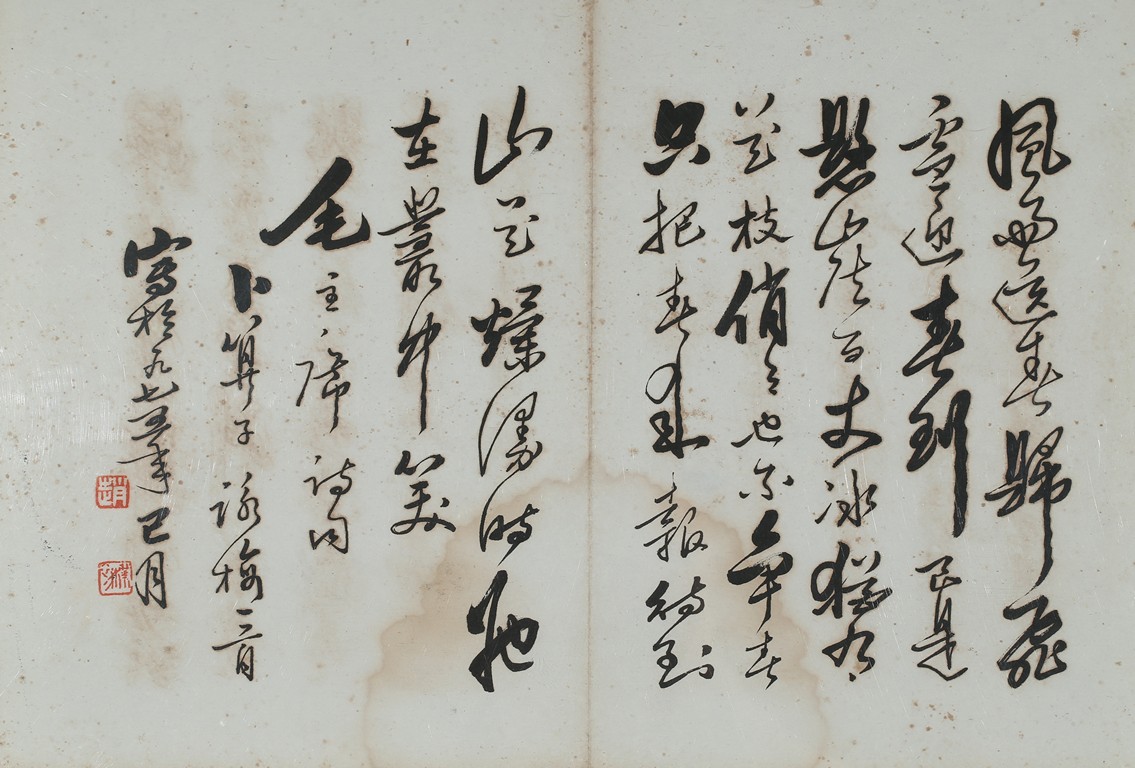 風雨送春歸飛
雪迎春到已是
懸崖百丈冰猶有
花枝俏〻也不爭春
只把春來報待到
山花爛漫時她
在叢中笑
毛主席詩詞
卜算子詠梅一首
寫於一九七五年巳月
趙